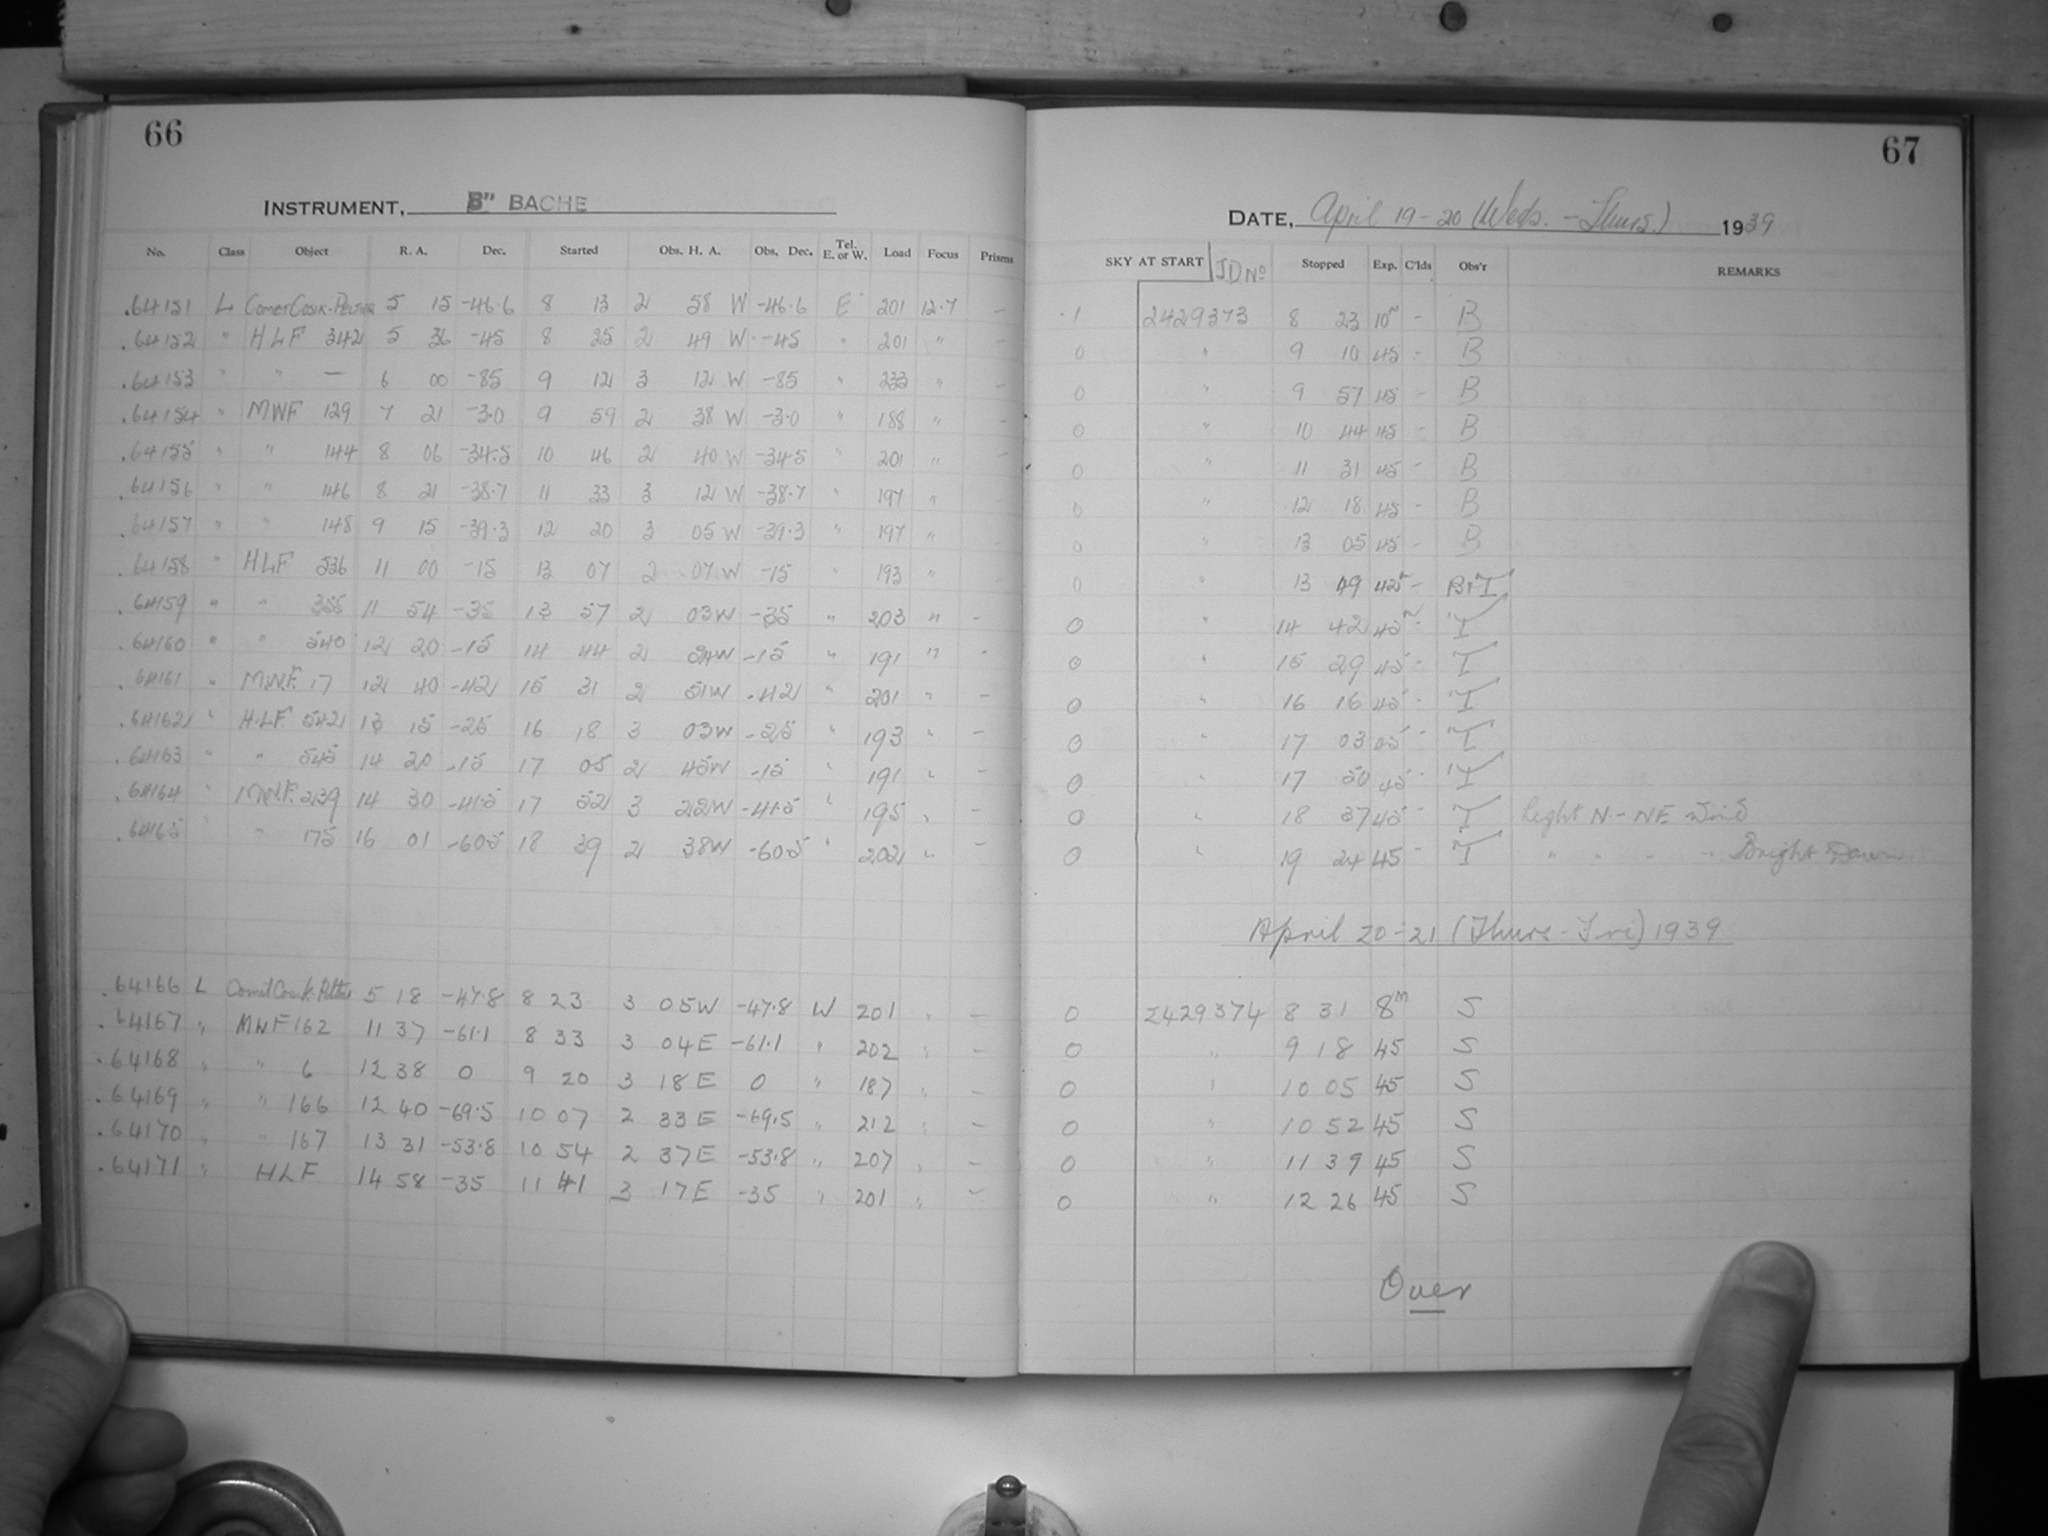 66
INSTRUMENT, 8" BACHE
No. Class Object R. A. Dec. Started Obs. H. A. Obs. Dec. Tel. E. or W. Load Focus Prisms
.64151 L Comet Cosik-Peltier 5 15 -46.6 8 13 2 58 W -46.6 E 201 12.7 -
.64152 " HLF 342 5 36 -45 8 25 2 49 W -45 " 201 " -
.64153 " " — 6 00 -85 9 12 3 12 W -85 " 233 " -
.64154 " MWF 129 7 21 -3.0 9 59 2 38 W -3.0 " 188 " -
.64155 " " 144 8 06 -34.5 10 46 2 40 W -34.5 " 201 " -
.64156 " " 146 8 21 -38.7 11 33 3 12 W -38.7 " 197 " -
.64157 " " 148 9 15 -39.3 12 20 3 05 W -39.3 " 197 " -
.64158 " HLF 536 11 00 -15 13 07 2 07 W -15 " 193 " -
.64159 " " 355 11 54 -35 13 57 2 03W -35 " 203 " -
.64160 " " 540 12 20 -15 14 44 2 24W -15 " 191 " -
.64161 " M.W.F. 17 12 40 -42 15 31 2 51W -42 " 201 " -
.64162 " H.L.F 542 13 15 -25 16 18 3 03W -25 " 193 " -
.64163 " " 545 14 20 -15 17 05 2 45W -15 " 191 " -
.64164 " M.W.F. 239 14 30 -41.5 17 52 3 22W -41.5 " 195 " -
.64165 " " 175 16 01 -60.5 18 39 2 38W -60.5 " 202 " -
.64166 L Comet Cosik-Peltier 5 18 -47.8 8 23 3 05W -47.8 W 201 " -
.64167 " MWF 162 11 37 -61.1 8 33 3 04E -61.1 " 202 " -
.64168 " " 6 12 38 0 9 20 3 18E 0 " 187 " -
.64169 " " 166 12 40 -69.5 10 07 2 33E -69.5 " 212 " -
.64170 " " 167 13 31 -53.8 10 54 2 37E -53.8 " 207 " -
.64171 " HLF 14 58 -35 11 41 3 17E -35 " 201 " -
67
DATE, April 19-20 (Weds.-Thurs.) 1939
SKY AT START JD No Stopped Exp. C'lds Obs'r REMARKS
1 2429373 8 23 10m - B
0 " 9 10 45 - B
0 " 9 57 45 - B
0 " 10 44 45 - B
0 " 11 31 45 - B
0 " 12 18 45 - B
0 " 13 05 45 - B
0 " 13 49 42m - B+T
0 " 14 42 45m - T
0 " 15 29 45 - T
0 " 16 16 45 - T
0 " 17 03 05 - T
0 " 17 50 45 - T
0 " 18 37 45 - T light N-NE Wind
0 " 19 24 45 - T " " - " Bright Dawn
April 20-21 (Thurs-Fri) 1939
0 2429374 8 31 8m S
0 " 9 18 45 S
0 " 10 05 45 S
0 " 10 52 45 S
0 " 11 39 45 S
0 " 12 26 45 S
Over